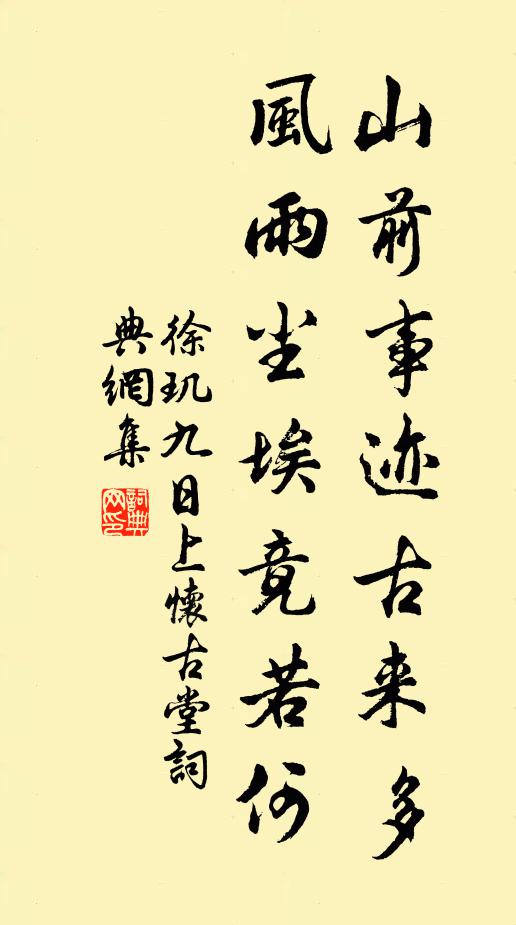 山前事迹古来多
風雨尘埃竟若何
徐玑九日上懷古堂詞
典網集
詞典网印